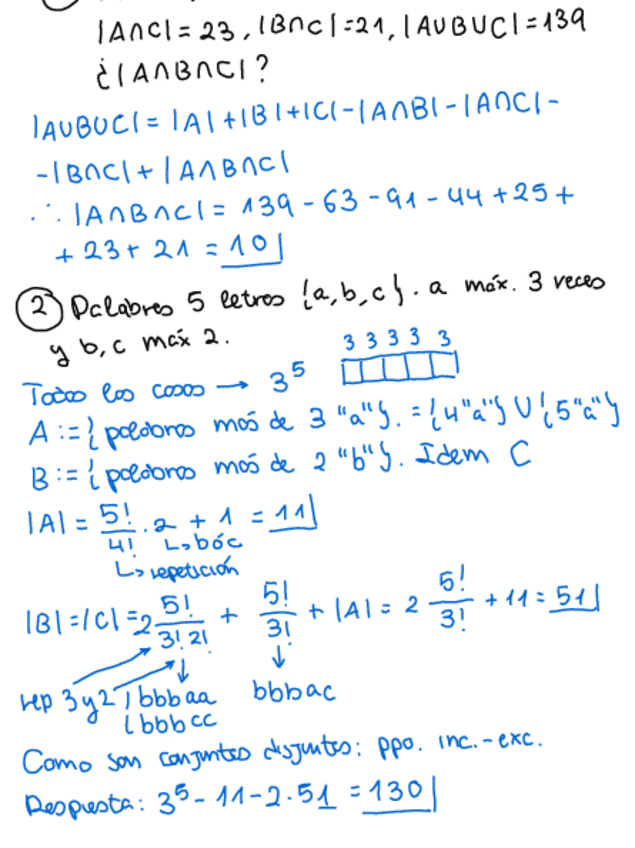 |A∩C| = 23, |B∩C| = 21, |A∪B∪C| = 139
¿|A∩B∩C|?
|A∪B∪C| = |A| + |B| + |C| - |A∩B| - |A∩C| -
- |B∩C| + |A∩B∩C|
∴ |A∩B∩C| = 139 - 63 - 91 - 44 + 25 +
+ 23 + 21 = 10
② Palabras 5 letras {a, b, c}. a máx. 3 veces
y b, c máx 2.
3 3 3 3 3
Todos los casos → 3^5
A := { palabras más de 3 "a" }. = {4 "a"} ∪ {5 "a"}
B := { palabras más de 2 "b" }. Idem C
|A| = 5!/4! · 2 + 1 = 11
↳ b ó c
↳ repetición
|B| = |C| = 2 5!/(3! 2!) + 5!/3! + |A| = 2 5!/3! + 11 = 51
rep 3 y 2 { bbbaa bbbac
{ bbbcc
Como son conjuntos disjuntos: ppo. inc.-exc.
Respuesta: 3^5 - 11 - 2·51 = 130